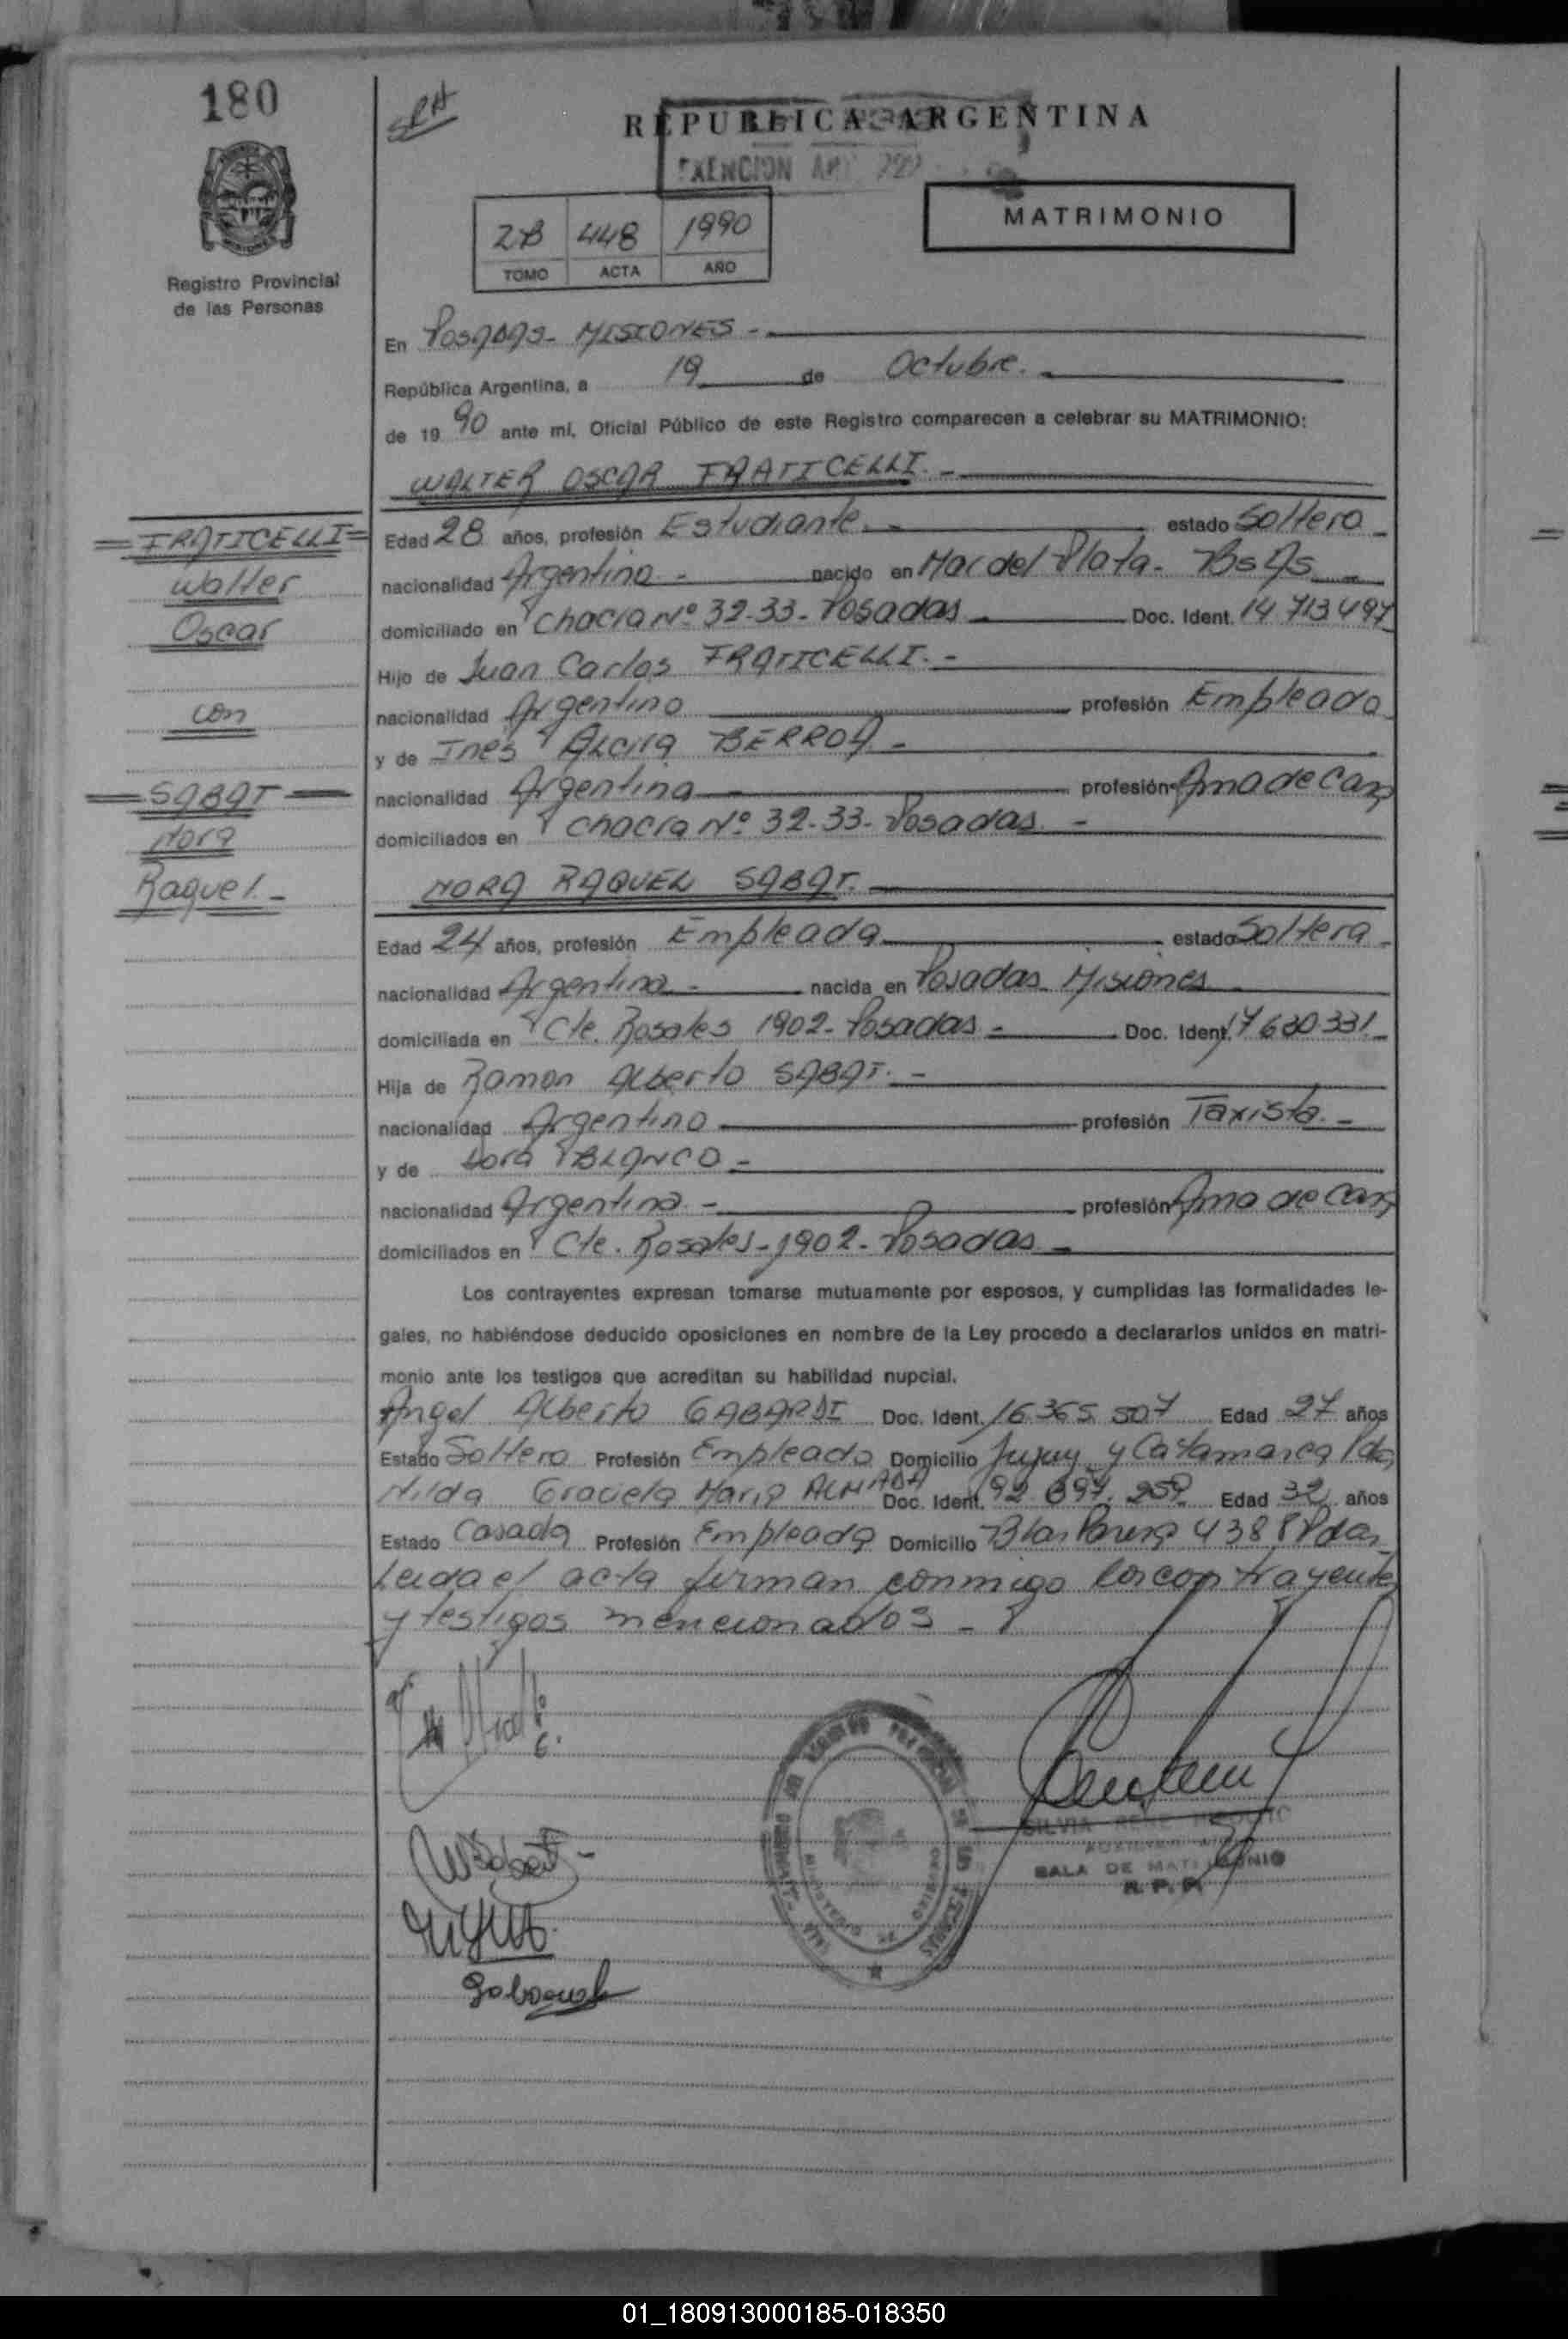 180
REPUBLICA ARGENTINA
EXENCION
MATRIMONIO
2B 448 1990
TOMO ACTA AÑO
Registro Provincial
de las Personas
En Posadas - MISIONES -
República Argentina, a 19 de Octubre. -
de 19 90 ante mí, Oficial Público de este Registro comparecen a celebrar su MATRIMONIO:
WALTER OSCAR FRATICELLI. -
FRATICELLI
Walter
Oscar
con
SABAT
Nora
Raquel. -
Edad 28 años, profesión Estudiante. - estado Soltero -
nacionalidad Argentina - nacido en Mar del Plata - Bs As -
domiciliado en Chacra Nº 32-33- Posadas - Doc. Ident. 14 713 497
Hijo de Juan Carlos FRATICELLI. -
nacionalidad Argentino profesión Empleado
y de Ines Alcira BERROA -
nacionalidad Argentina - profesión Ama de Casa
domiciliados en Chacra Nº 32-33- Posadas -
NORA RAQUEL SABAT. -
Edad 24 años, profesión Empleada estado Soltera -
nacionalidad Argentina - nacida en Posadas Misiones
domiciliada en Cte. Rosales 1902- Posadas - Doc. Ident. 17 630 331 -
Hija de Ramon Alberto SABAT. -
nacionalidad Argentino profesión Taxista. -
y de Dora BLANCO -
nacionalidad Argentina - profesión Ama de Casa
domiciliados en Cte. Rosales - 1902 - Posadas -
Los contrayentes expresan tomarse mutuamente por esposos, y cumplidas las formalidades le-
gales, no habiéndose deducido oposiciones en nombre de la Ley procedo a declararlos unidos en matri-
monio ante los testigos que acreditan su habilidad nupcial.
Angel Alberto GABARDI Doc. Ident. 16 365 507 Edad 27 años
Estado Soltero Profesión Empleado Domicilio Jujuy y Catamarca Pdas
Nilda Graciela Maria ALMADA Doc. Ident. 92 697 259 Edad 32 años
Estado Casada Profesión Empleada Domicilio Blas Parera 438 Pdas
Leida el acta firman conmigo los contrayentes
y testigos mencionados -
SILVIA RENE
SALA DE MATRIMONIO
R. P. P.
01_180913000185-018350